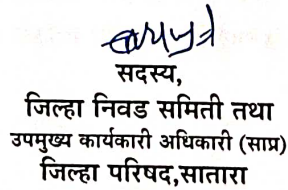 सदस्य,
जिल्हा निवड समिती तथा
उपमुख्य कार्यकारी अधिकारी (साप्र)
जिल्हा परिषद,सातारा